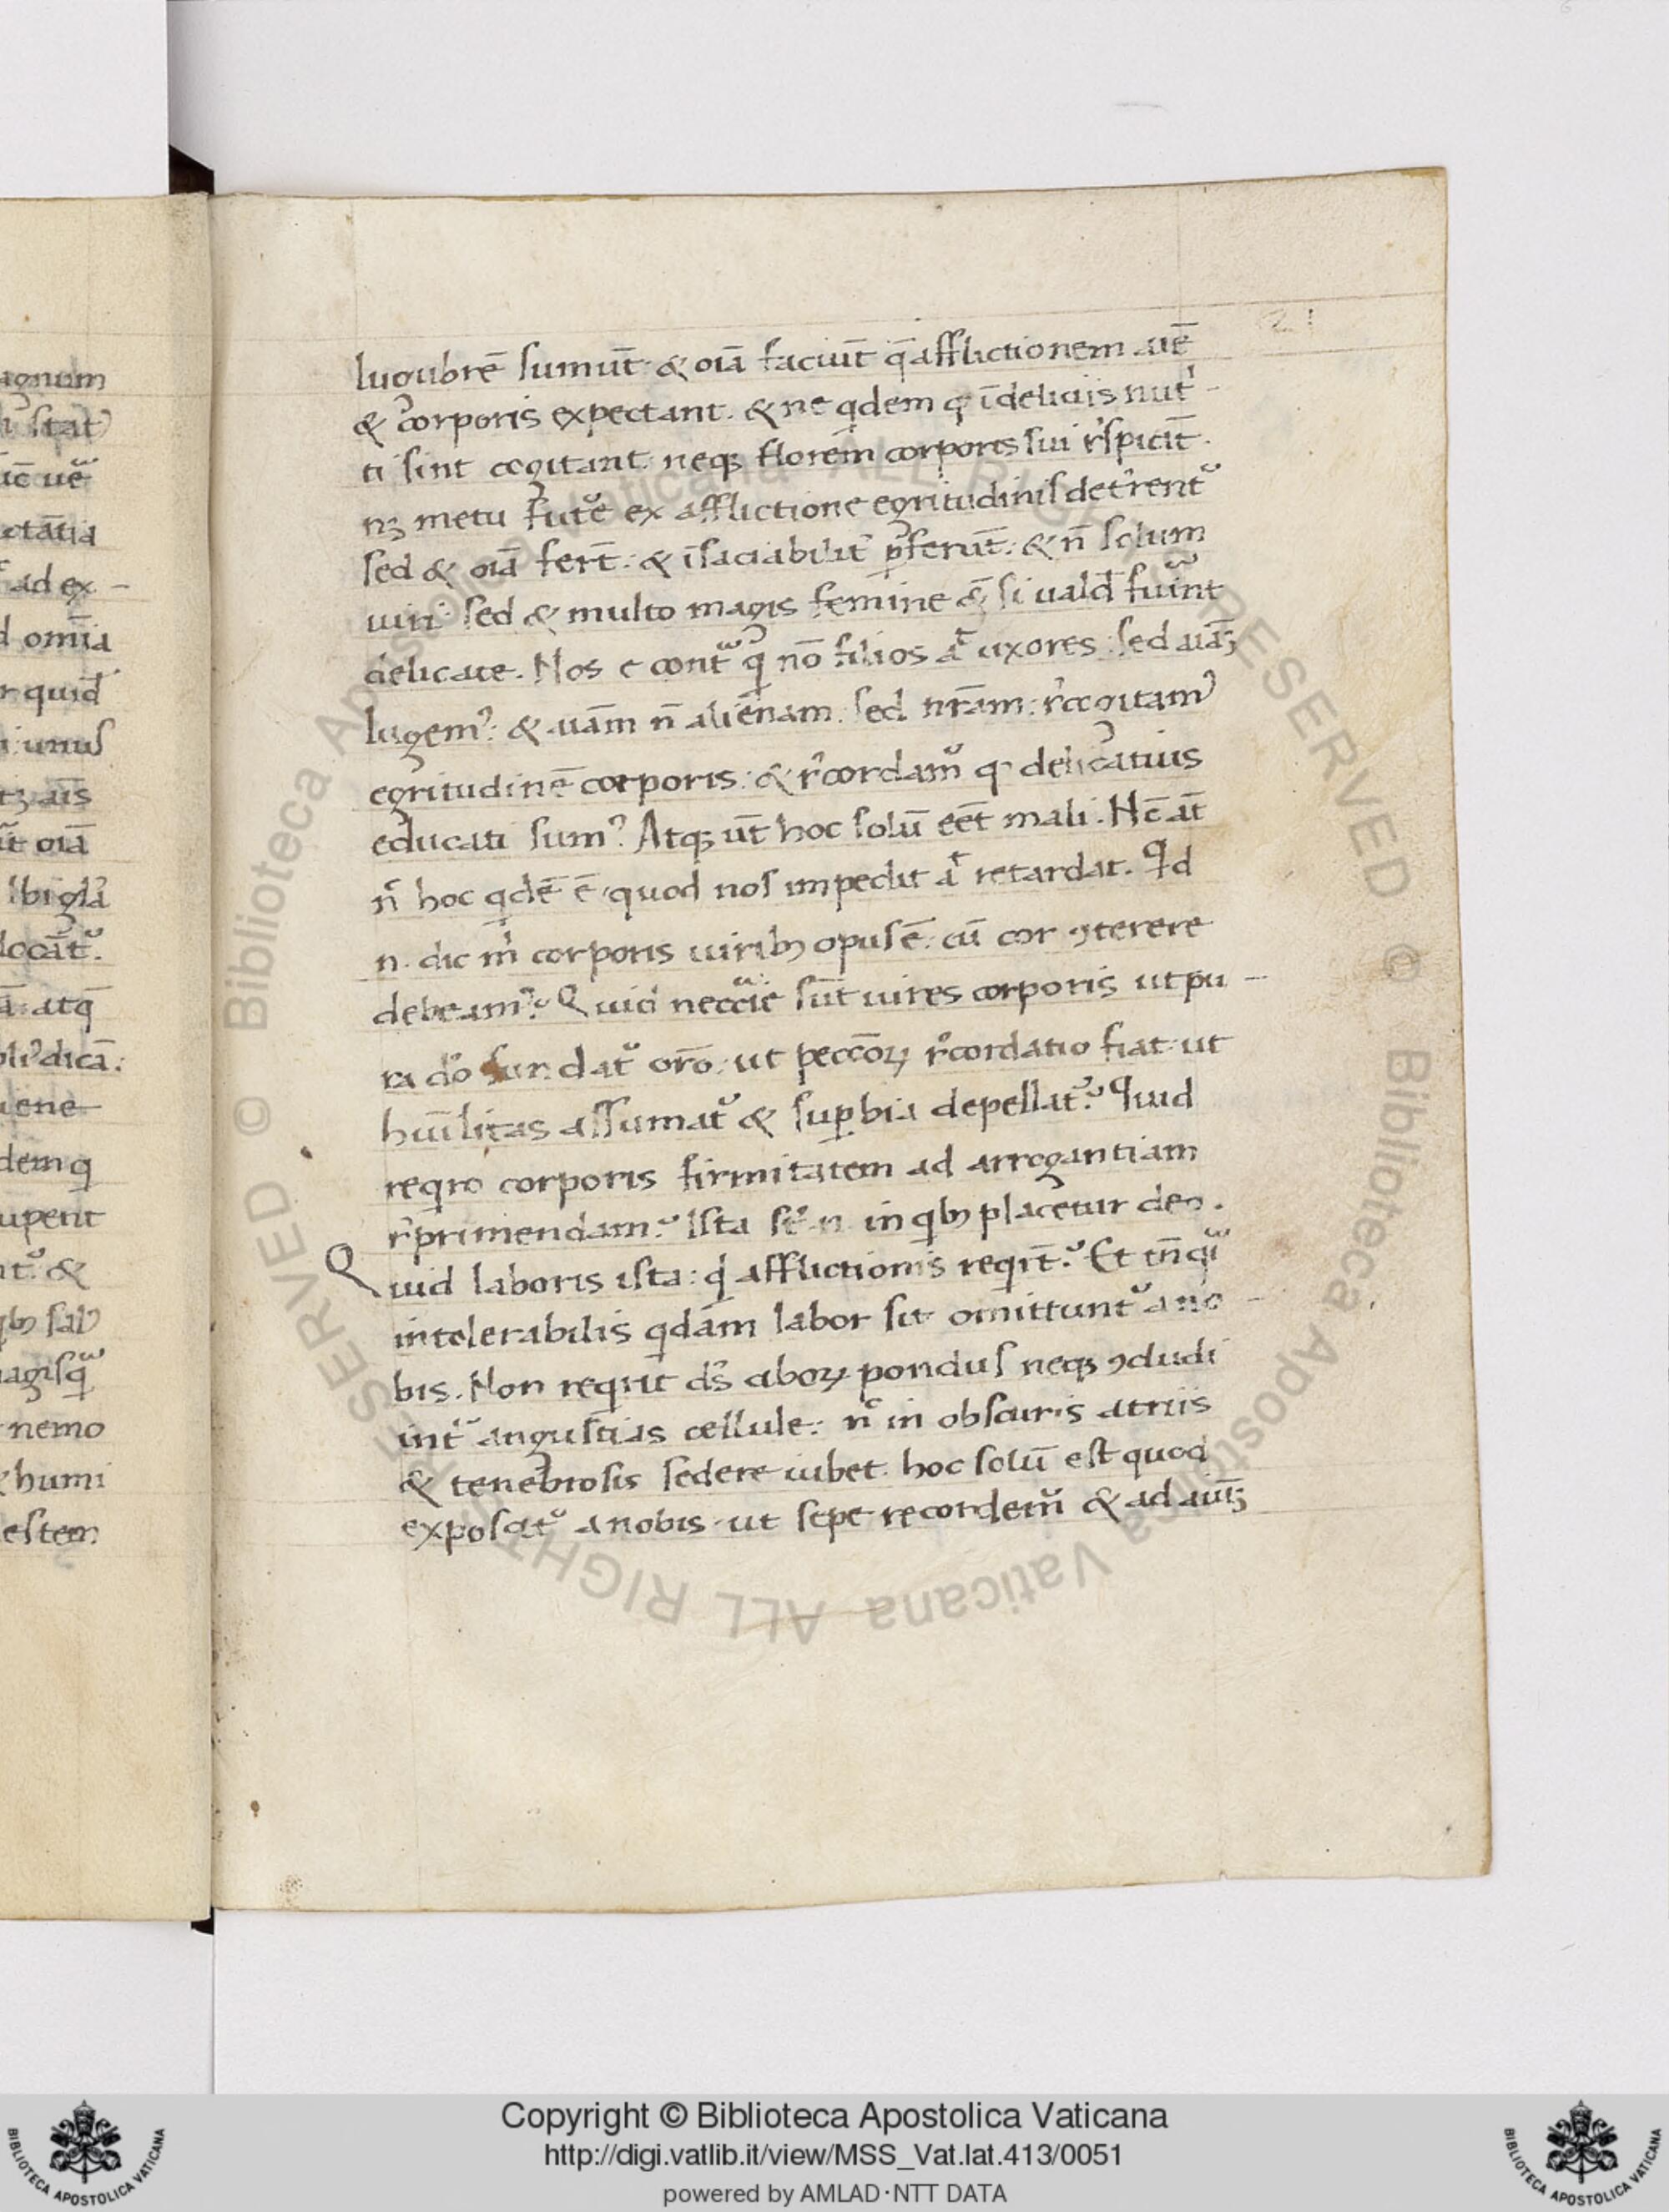 agnum
stat
ctātia
ad ex -
omīa
quid
unus
ais
oiā
nemo
humi
estem
lugubrē sumūt · & oiā faciūt q̄ afflictionem aīe
& corporis expectant. & ne qdem q ī deliciis nutⁱ -
ti sint cogitant. neqꝫ florem corporis sui rˀspiciūt.
nꝫ metu future ex afflictione egritudinis detˀrentᷣ
sed & oiā ferūt: & īsaciabilitˀ pˀferūt: & n̄ solum
uiri sed & multo magis femine & si uald fuīnt
delicate. Nos e cont̾ q nō filios aᵗ uxores: sed aīaꝫ
lugemꝰ: & aīam n̄ alienam: sed nr̄am: rˀcogitamꝰ
egritudinē corporis: & rˀcordamᷣ q delicatius
educati sumꝰ. Atqꝫ ut̄ hoc solū eet̄ mali. Nc̄ at̄
nᶜ hoc qdē ē quod nos impedit aᵗ retardat. Qd
n. dic mⁱ corporis uiribꝫ opus ē: cū cor ꝯterere
debeamꝰ? Quid neccᵃie sūt uires corporis ut pu -
ra dō fundatᷣ oro: ut peccoꝝ rˀcordatio fiat: ut
hūilitas assumatᷣ & suꝑbia depellatᷣ? Quid
reqro corporis firmitatem ad arrogantiam
rˀprimendam? Ista st̄ n. in qbꝫ placetur deo.
Quid laboris ista: qd afflictionis reqrt̄? Et tn̄ qᵃi
intolerabilis qdam labor sit omittuntᷣ a no -
bis. Non reqrit ds ciboꝝ pondus neqꝫ ꝯcludi
intᷣ angustias cellule: nᶜ in obscuris atriis
& tenebrosis sedere iubet. hoc solū est quod
exposcitᷣ a nobis · ut sepe recordem̃ & ad aīuꝫ
Copyright © Biblioteca Apostolica Vaticana
http://digi.vatlib.it/view/MSS_Vat.lat.413/0051
powered by AMLAD·NTT DATA
BIBLIOTECA APOSTOLICA VATICANA
BIBLIOTECA APOSTOLICA VATICANA